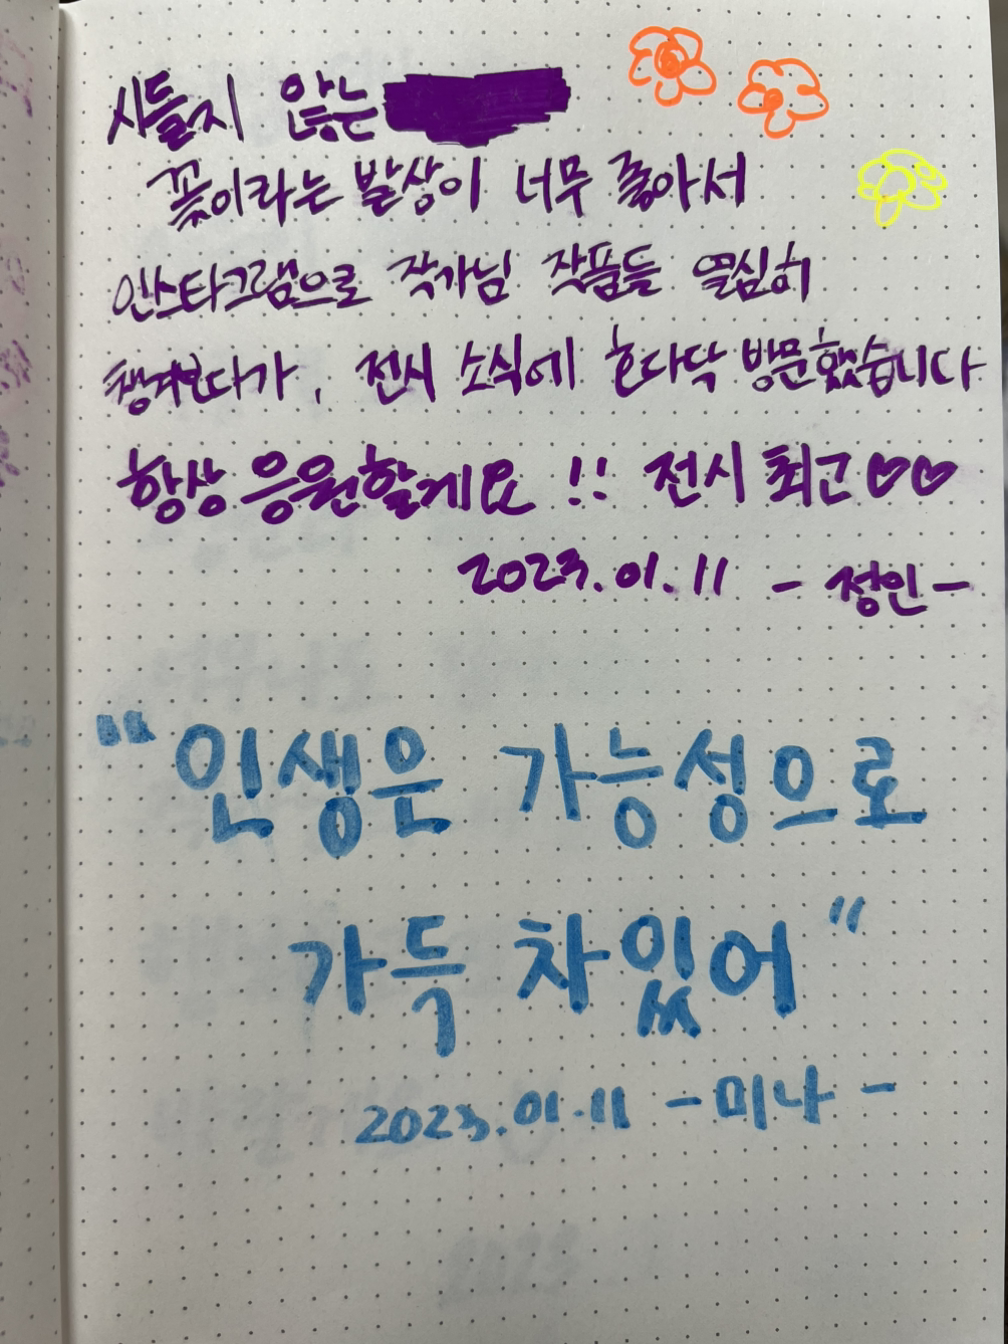 시들지 않는
꽃이라는 발상이 너무 좋아서
인스타그램으로 작가님 작품들 열심히
챙겨보다가, 전시 소식에 호다닥 방문했습니다
항상 응원할게요 !! 전시 최고♡♡
2023.01.11 - 정인 -
"인생은 가능성으로
가득 차있어"
2023.01.11 - 미나 -